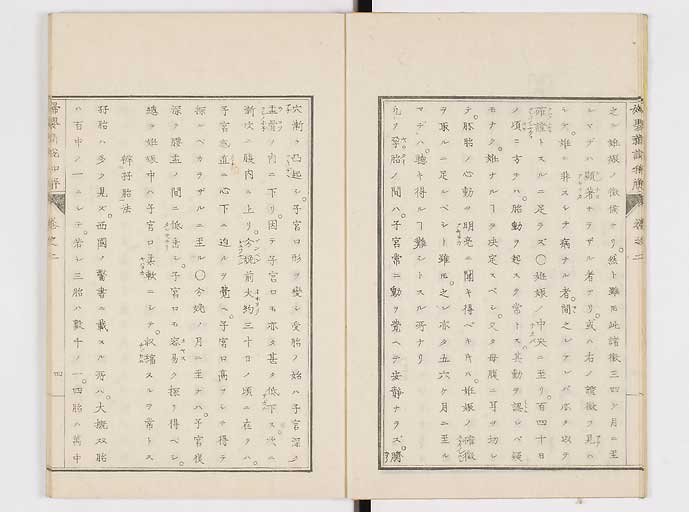 之ル妊娠ノ徴候ナリ然ト雖モ此諸徴三四ケ月ニ至
ルマデハ顕著ナラザル者ナリ或ハ右ノ諸徴ヲ見ハ
シテ妊ニ非スシテ病ナル者間之レアレバ亦タ以テ
確證トスルニ足ラズ〇妊娠ノ中央ニ至リ百四十日
ノ頃ニ方テハ胎動ヲ起スヲ常トス其動ヲ認レバ疑
モナク妊ナルヿヲ決定スベシ又タ母腹ニ耳ヲ切シ
テ胎ノ心動ヲ明亮ニ聞キ得ベキハ妊娠ノ確徴
ヲ取ルニ足ルベシト雖モ之レ亦タ五六ケ月ニ至ル
マデハ聴キ得ルヿ難シトスル所ナリ
凡ソ孕胎ノ間ハ子宮常ニ動ヲ覚ヘテ安静ナラズ臍
穴漸ク凸起シ子宮口形ヲ変シ受胎ノ始ハ子宮深ク
盂骨ノ内ニ下リ因テ子宮口モ亦タ甚タ低下ス次ニ
漸次ニ腹内ニ上リ分娩前大約三十日ノ頃ニ在テハ
子宮底直ニ心下ニ迫ルヲ覚ヘ子宮口高フシテ得テ
探ルベカラザルニ至ル〇分娩ノ月ニ至テハ子宮復
深ク腰盂ノ間ニ低垂シ子宮口モ容易ク探リ得ベシ
総テ妊娠中ハ子宮口柔軟ニシテ収縮スルヲ常トス
辨孖胎法
孖胎ハ多ク見ズ西國ノ醫書ニ載スル所ハ大概双胎
ハ百中ノ一ニシテ若シ三胎ハ数千ノ一四胎ハ萬中
巻之二
四